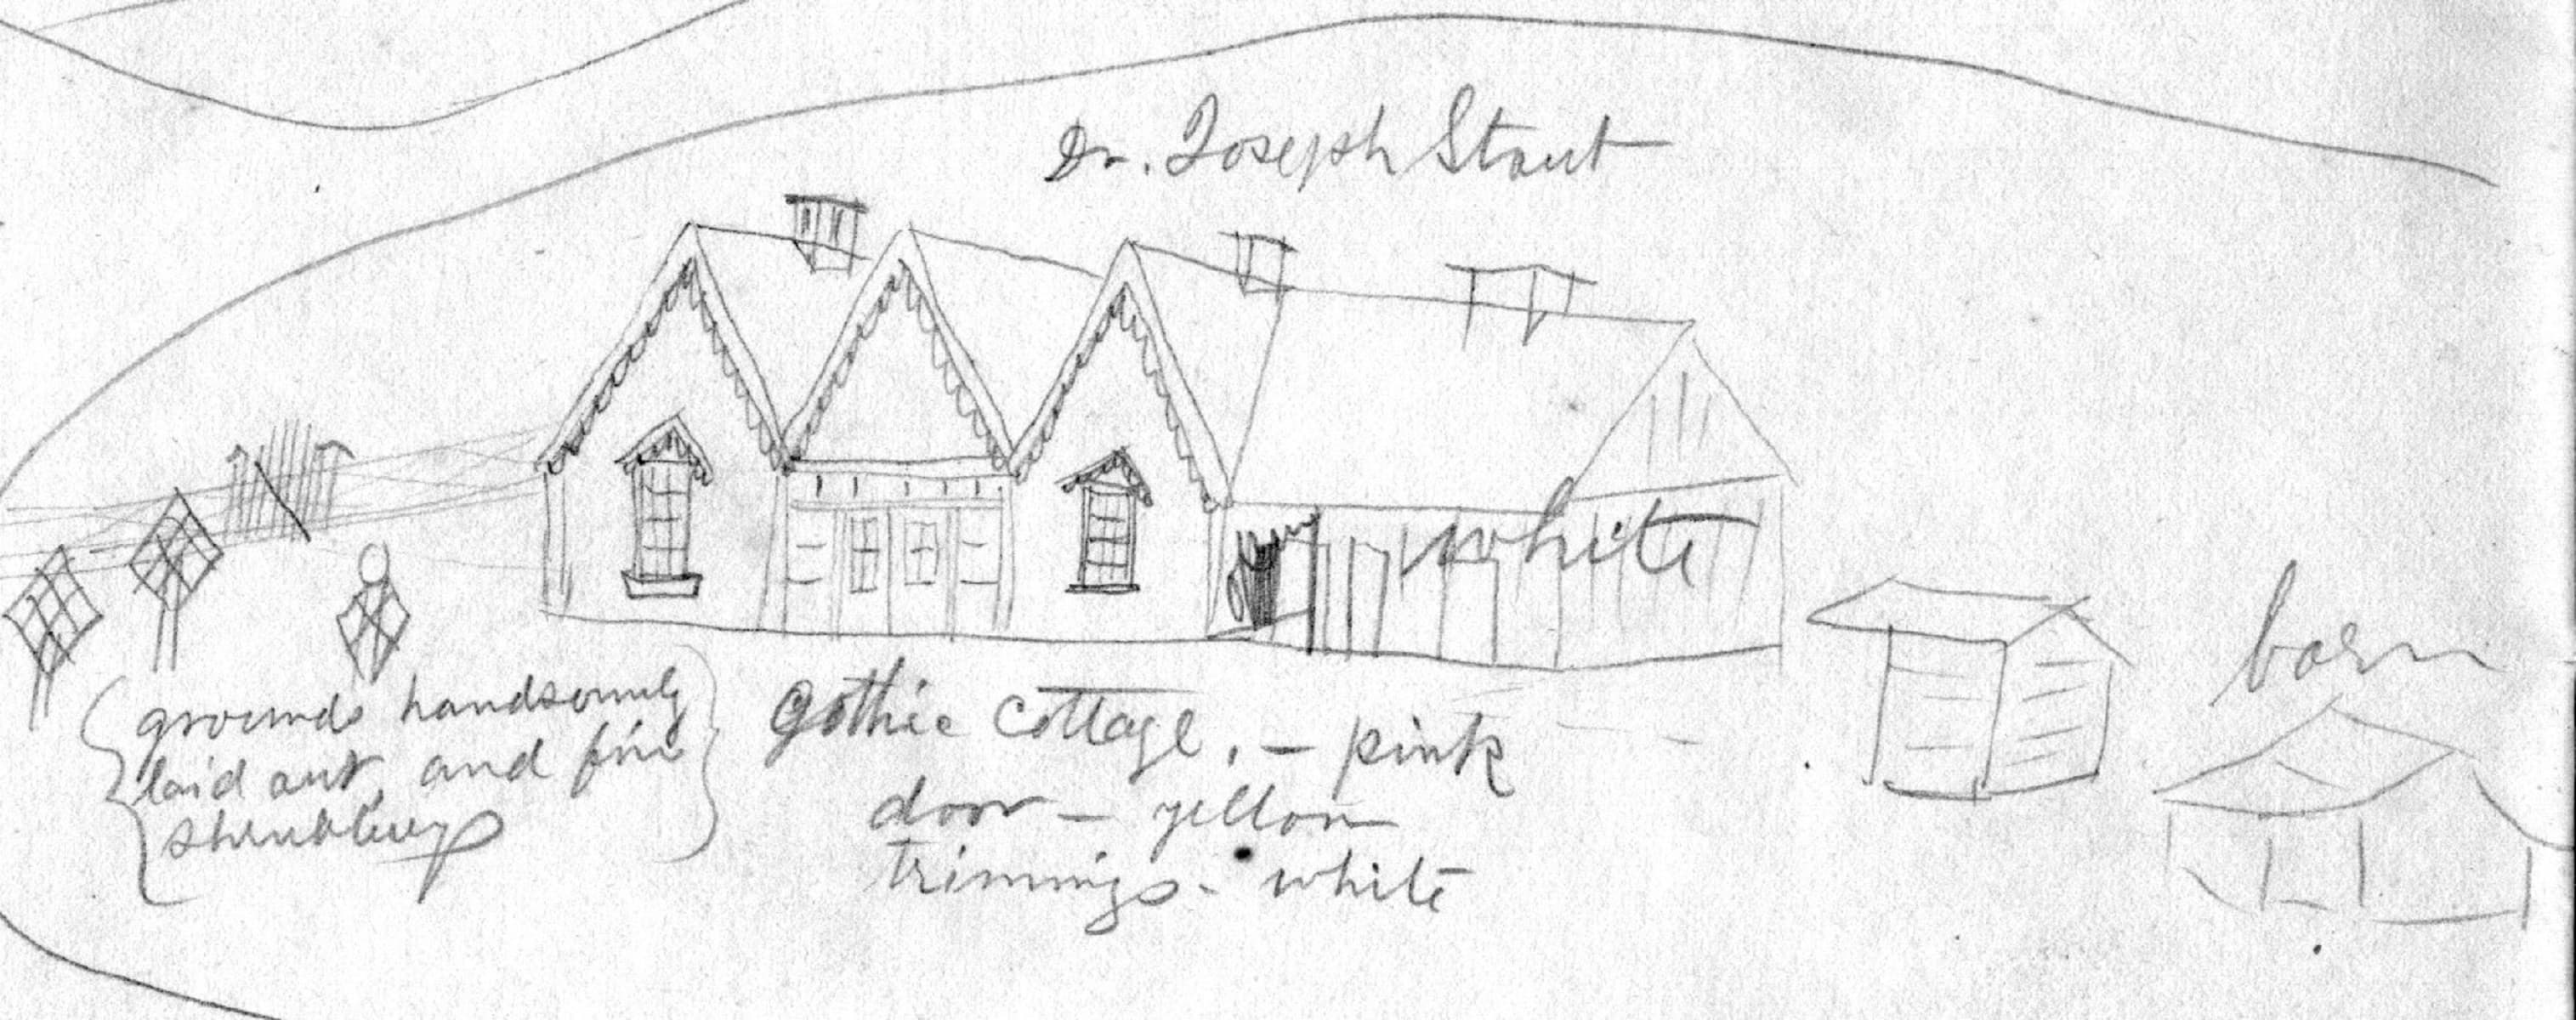 Dr. Joseph Stout
white
barn
grounds handsomely
laid out, and fine
shrubbery
Gothic cottage, - pink
door - yellow
trimmings - white